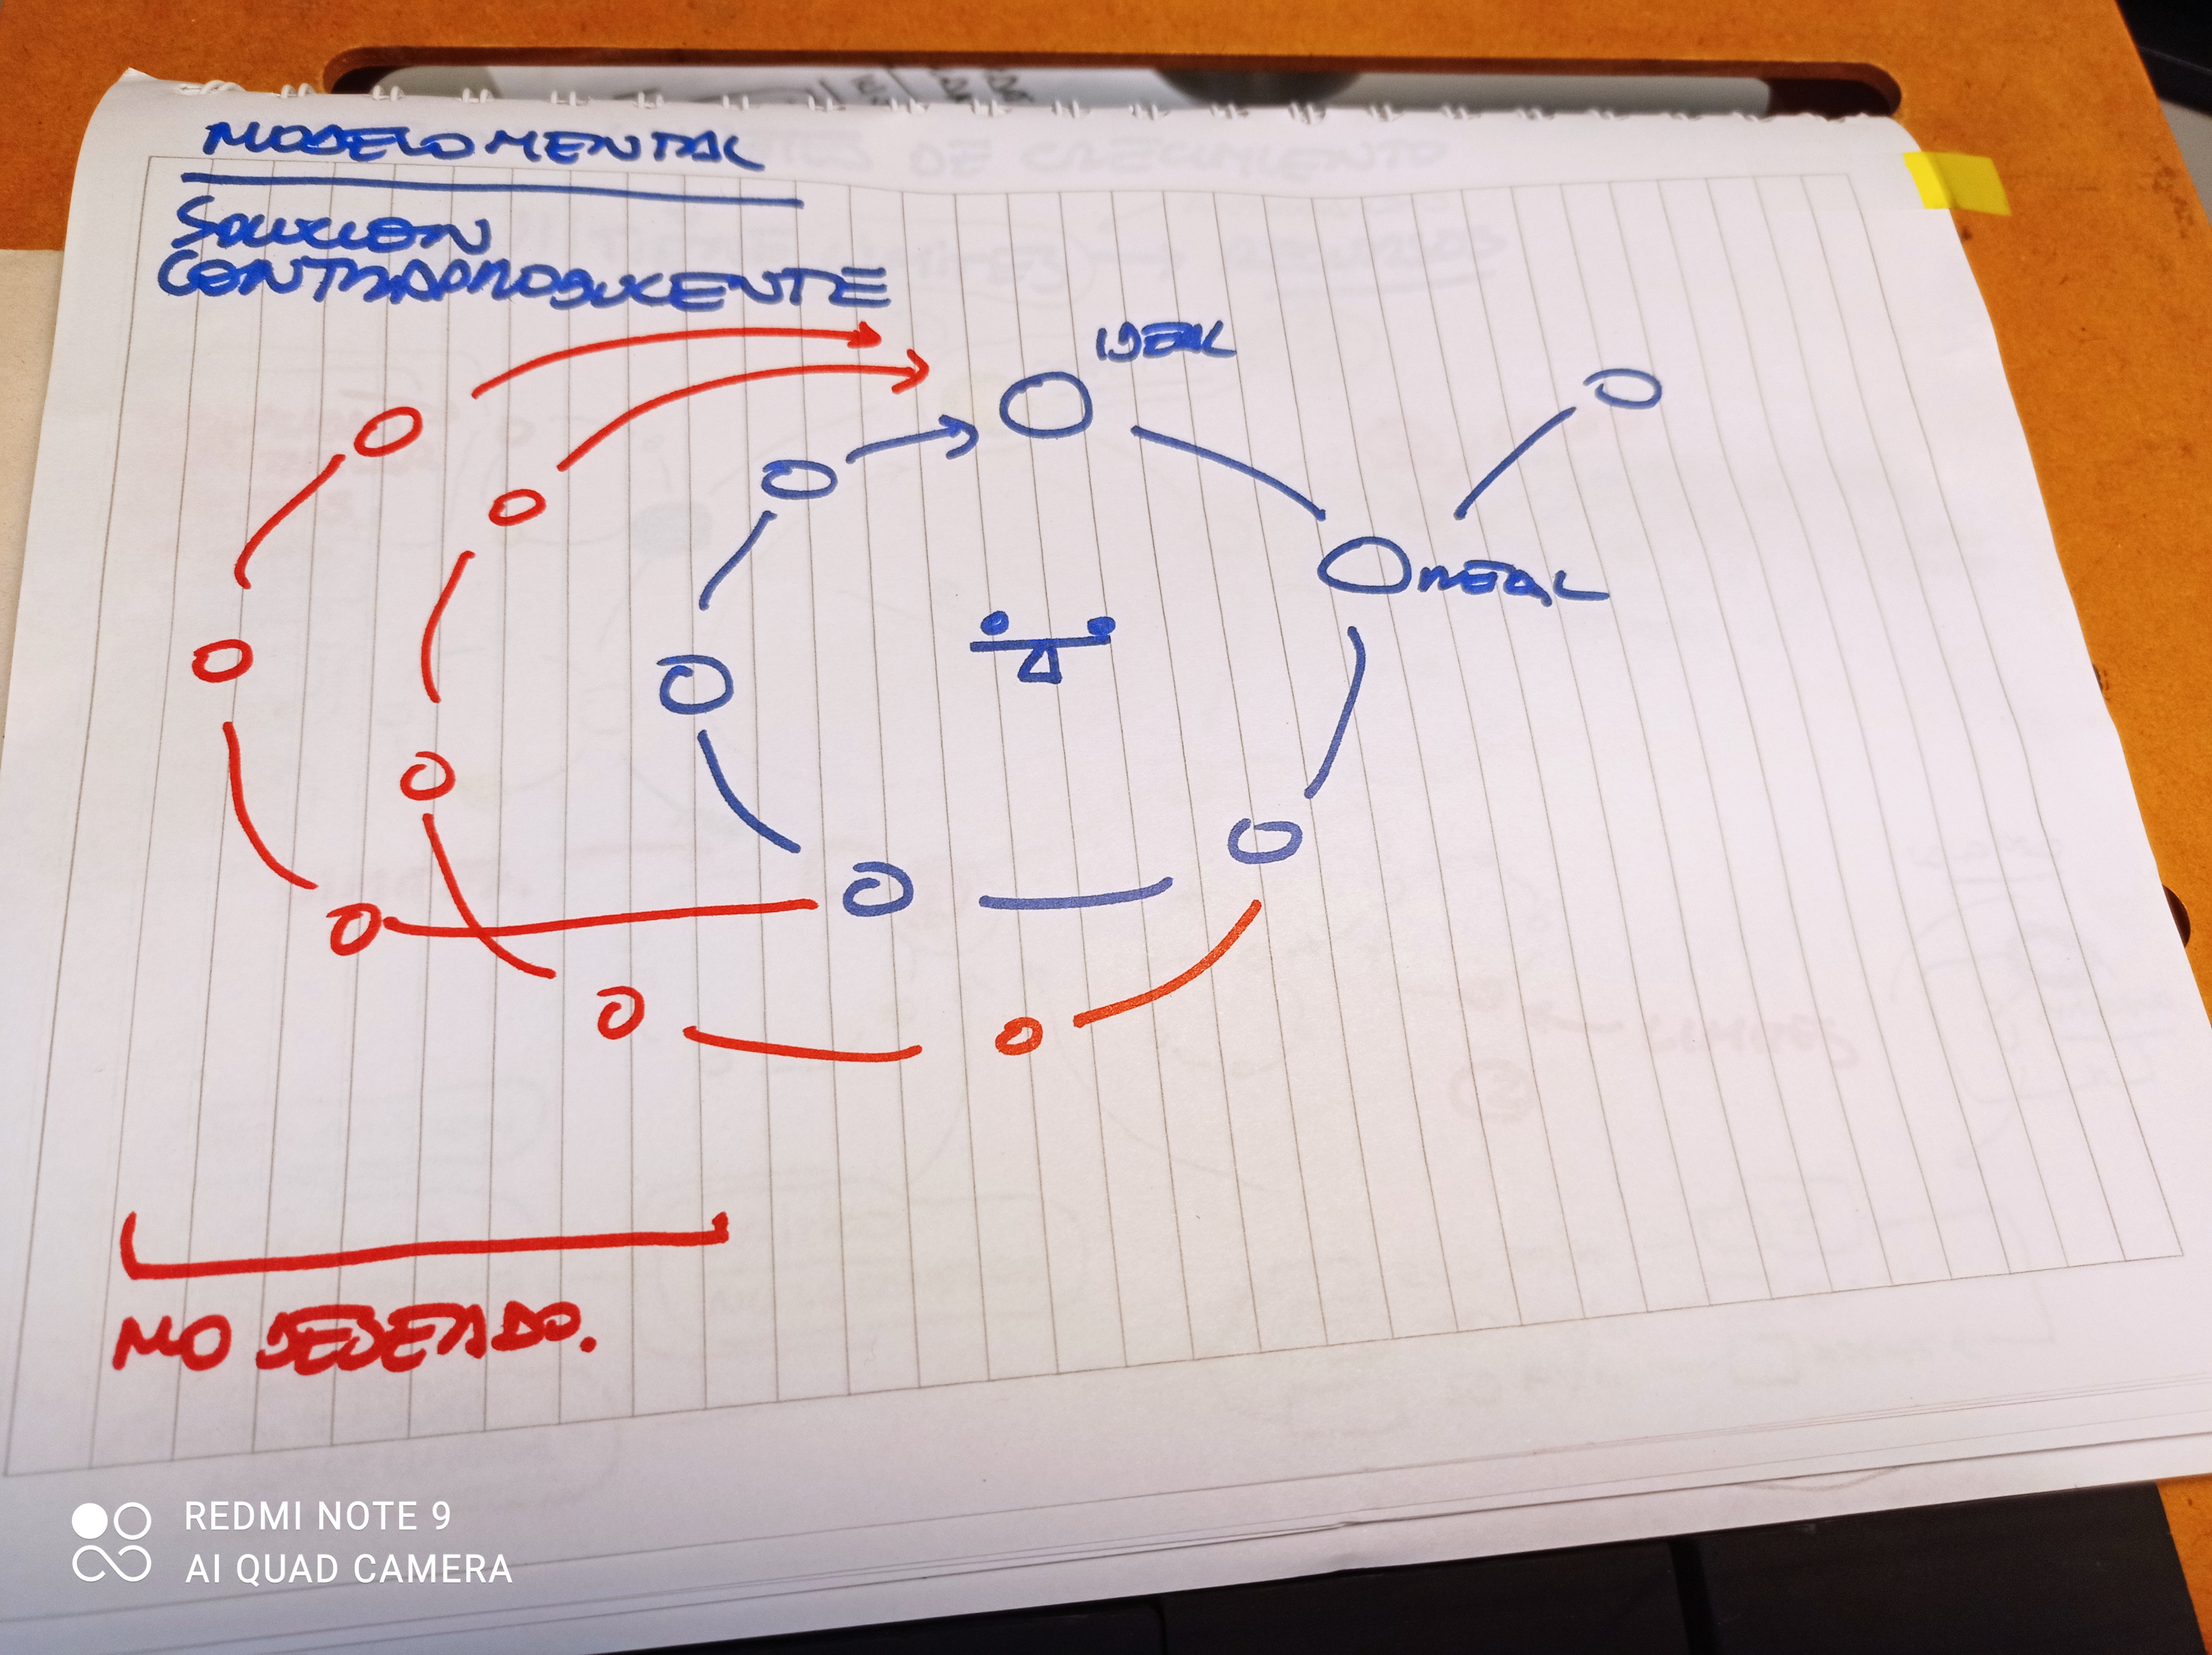 MODELO MENTAL
SOLUCION
CONTRAPRODUCENTE
IDEAL
REAL
NO DESEADO.
REDMI NOTE 9
AI QUAD CAMERA